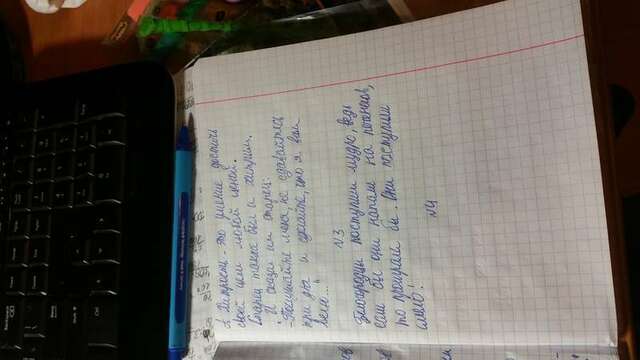 А Хитрость - это умение достичь
своей цели любой ценой.
Старец также был и хитрым.
"И сказал им старец:
- Послушайте меня, не сдавайтесь
три дня и сделайте, что я вам
велю..."
N3
Белгородцы поступили мудро, ведь
если бы они напали на печенегов,
то проиграли бы. Они поступили
смело!
N4